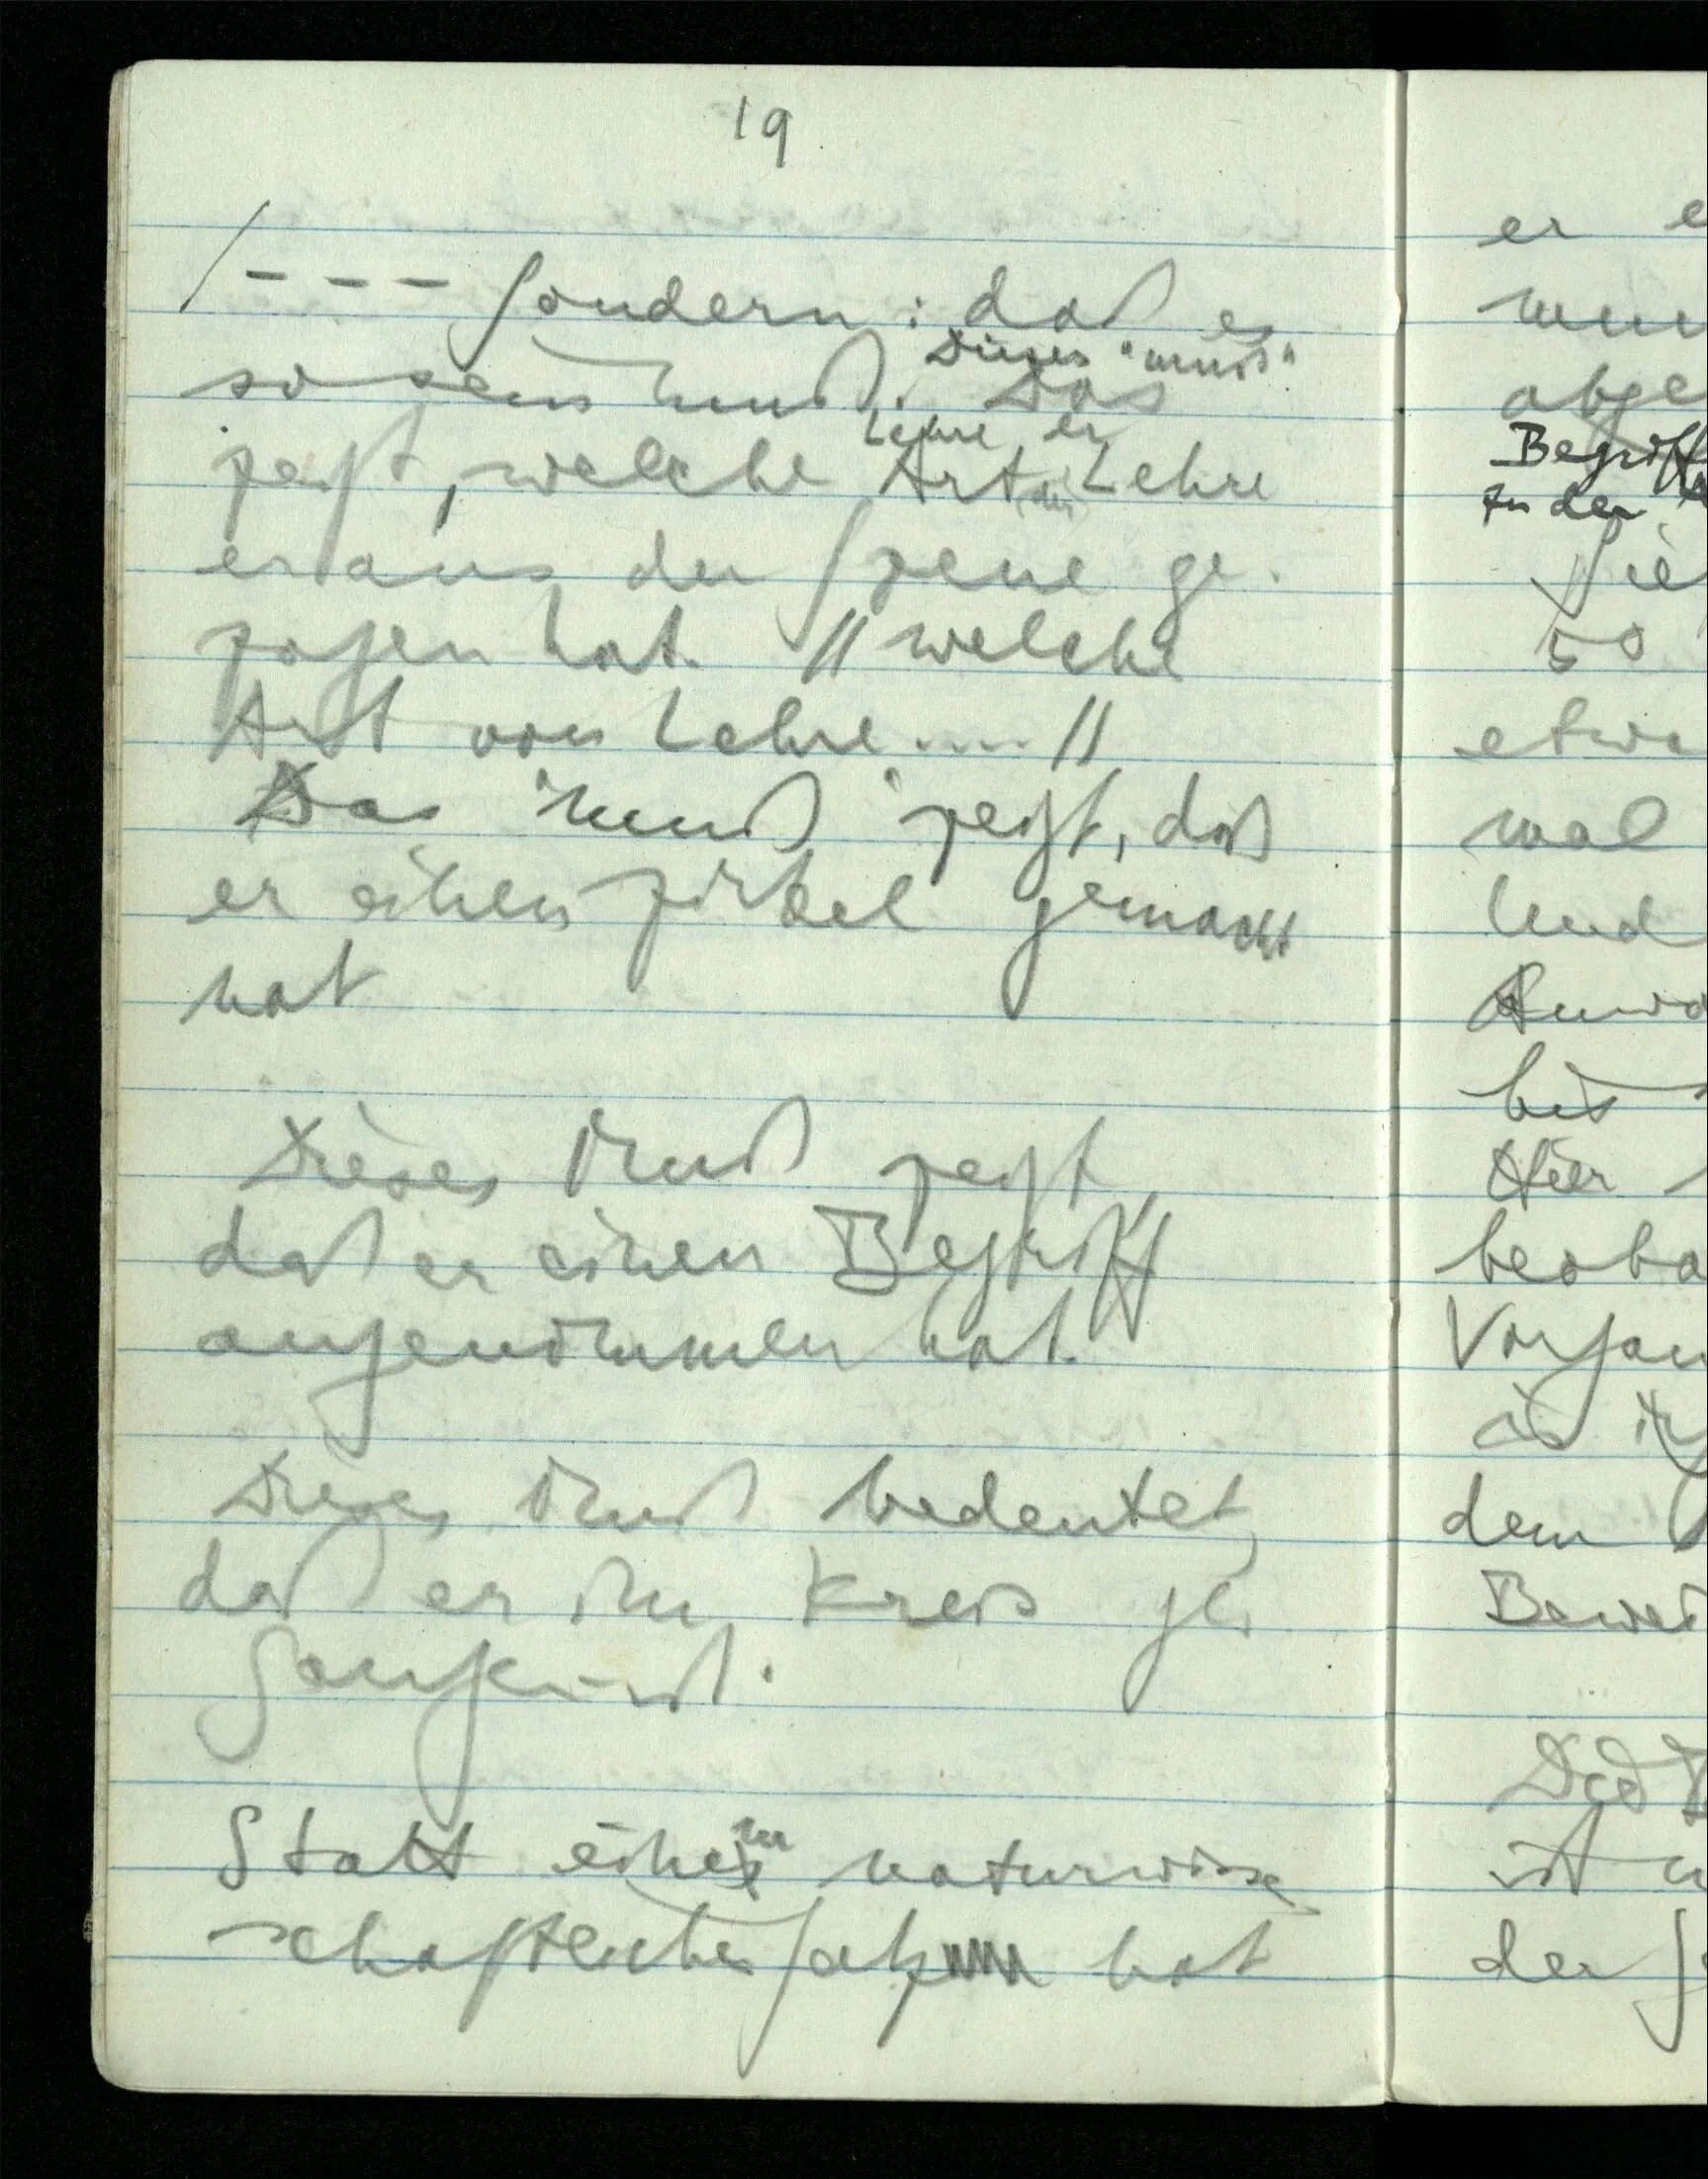 19
/ – – – sondern: daß es
Dieses "muß"
so sein muß. Das
Lehre er
zeigt, welche Art der Lehre
er aus der Szene ge-
zogen hat. // welche
Art von Lehre .... //
Das 'muß' zeigt, daß
er einen Zirkel gemacht
hat
Dieses Muß zeigt
daß er einen Begriff
angenommen hat.
Dieses Muß bedeutet,
daß er im Kreis ge-
gangen ist.
Statt eines
naturwissen-
schaftlichen Satz hat
er e
abge
Begriff
zu der
Sie
50
etwa
mal
Und
bis
Hier
beoba
Vorgan
als
dem
Bewei
Das
ist
der